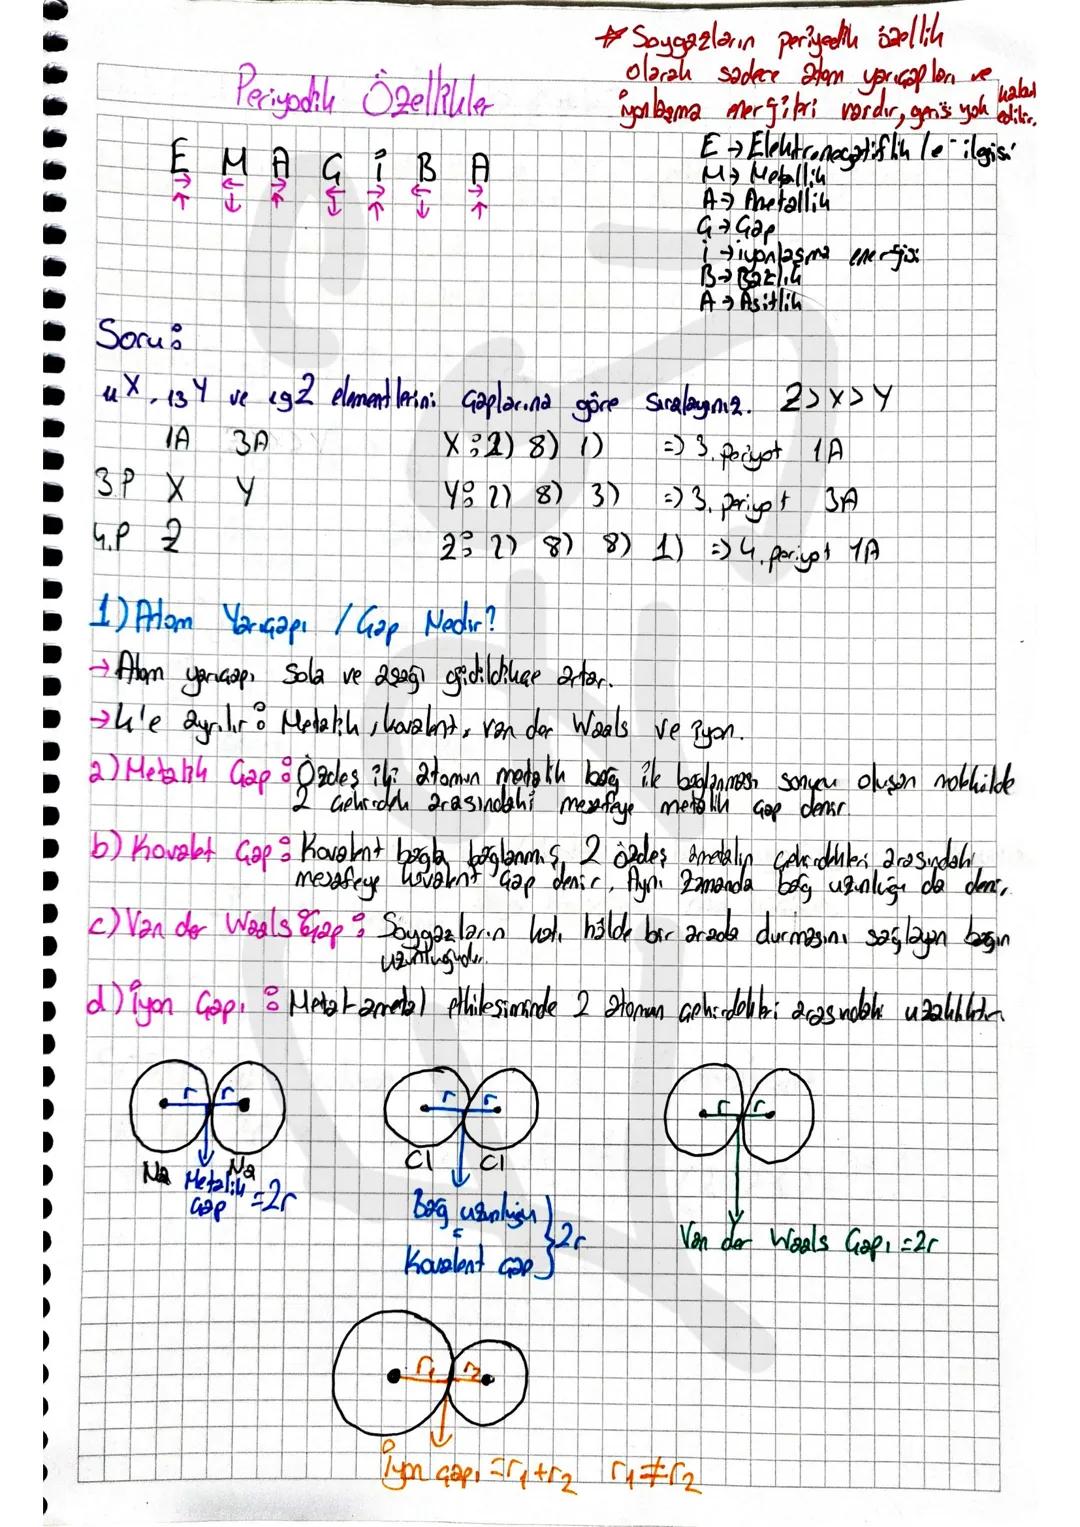 * Soygazların periyodik özellik
olarak sadece atom yarıçapları ve
iyonlaşma enerjileri vardır, gerisi yok kabul edilir.
Periyodik Özellikler
E M A Ç İ B A
→ ← → ← → ← →
↑ ↓ ↑ ↓ ↑ ↓ ↑
E → Elektronegatiflik / e⁻ ilgisi
M → Metallik
A → Ametallik
Ç → Çap
İ → iyonlaşma enerjisi
B → Bazlık
A → Asitlik
Soru:
₁₁X, ₁₃Y ve ₁₉Z elementlerini çaplarına göre sıralayınız. Z > X > Y
1A 3A
3.P X Y
4.P Z
X: 2) 8) 1) => 3. periyot 1A
Y: 2) 8) 3) => 3. periyot 3A
Z: 2) 8) 8) 1) => 4. periyot 1A
1) Atom Yarıçapı / Çap Nedir?
→ Atom yarıçapı sola ve aşağı gidildikçe artar.
→ 4'e ayrılır: Metalik, kovalent, van der Waals ve iyon.
a) Metalik Çap: Özdeş iki atomun metalik bağ ile bağlanması sonucu oluşan molekülde
2 çekirdek arasındaki mesafeye metalik çap denir.
b) Kovalet Çap: Kovalent bağla bağlanmış, 2 özdeş ametalin çekirdekleri arasındaki
mesafeye kovalent çap denir. Aynı zamanda bağ uzunluğu da denir.
c) Van der Waals Çap: Soygazların katı hâlde bir arada durmasını sağlayan bağın
uzunluğudur.
d) İyon Çapı: Metal-ametal etkileşiminde 2 atomun çekirdekleri arasındaki uzaklıktır.
r r
Na Na
Metalik
çap = 2r
r r
Cl Cl
Bağ uzunluğu
=
Kovalent çap } 2r
r r
Van der Waals Çapı = 2r
r₁ r₂
İyon çapı = r₁ + r₂ r₁ ≠ r₂